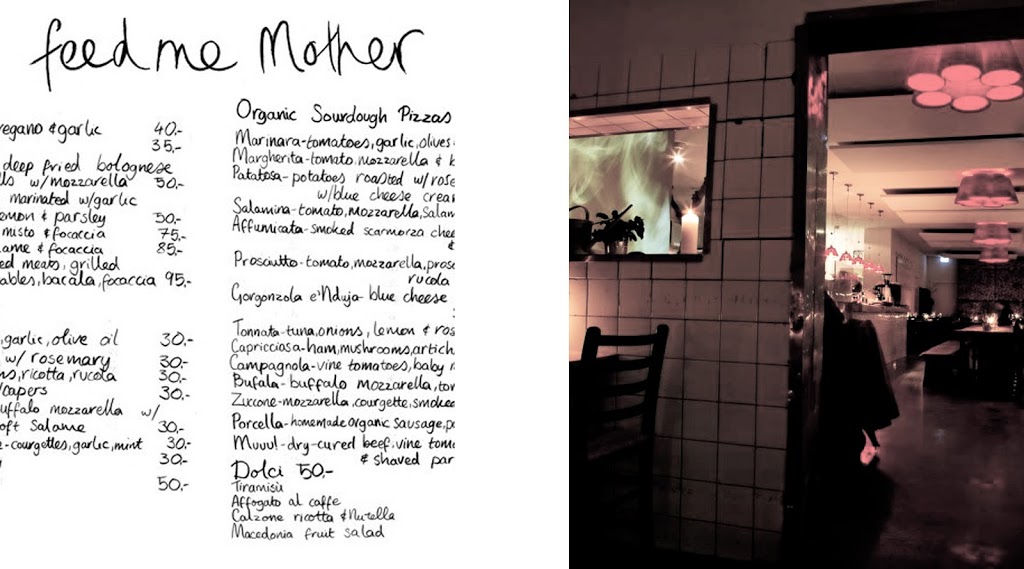 feed me Mother
regano & garlic 40,-
35,-
deep fried bolognese
lls w/mozzarella 50,-
marinated w/garlic
emon & parsley 50,-
misto & focaccia 75,-
ame & focaccia 85,-
ed meats, grilled
ables, bacala, focaccia 95,-
, garlic, olive oil 30,-
w/ rosemary 30,-
ns, ricotta, rucola 30,-
/capers 30,-
uffalo mozzarella w/
oft Salame 30,-
e-courgettes, garlic, mint 30,-
30,-
50,-
Organic Sourdough Pizzas
Marinara-tomatoes, garlic, olives
Margherita-tomato, mozzarella & b
Patatosa-potatoes roasted w/rose
w/blue cheese crea
Salamina-tomato, Mozzarella, Salam
Affumicata-smoked scarmorza chee
&
Prosciutto-tomato, mozzarella, prosc
rucola
Gorgonzola e'Nduja-blue cheese
Tonnata-tuna, onions, lemon & ros
Capricciosa-ham, mushrooms, artich
Campagnola-vine tomatoes, baby
Bufala-buffalo mozzarella, tom
Zuccone-mozzarella, courgette, smoke
Porcella-homemade organic sausage, p
Muuu!-dry-cured beef, vine toma
& shaved par
Dolci 50,-
Tiramisù
Affogato al caffe
Calzone ricotta & Nutella
Macedonia fruit salad